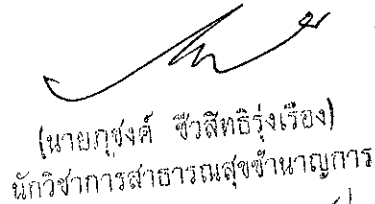 (นายภุชงค์ ชีวสิทธิรุ่งเรือง)
นักวิชาการสาธารณสุขชำนาญการ